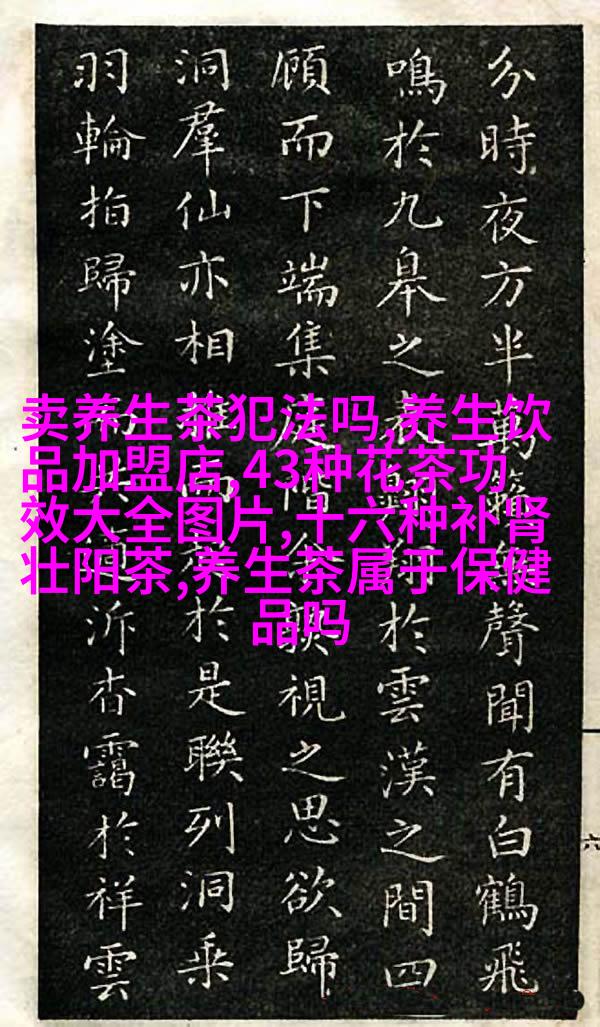 卖养生茶犯法吗,养生饮
品加盟店,43种花茶功
效大全图片,十六种补肾
壮阳茶,养生茶属于保健
品吗
分時夜方半聲聞有白鶴飛
鳴於九皋之表翔於雲漢之間四
顧而下端集庭階視之思欲歸
洞羣仙亦相而於是聯列洞乘
羽輪拍歸塗泝杳靄於祥雲
六